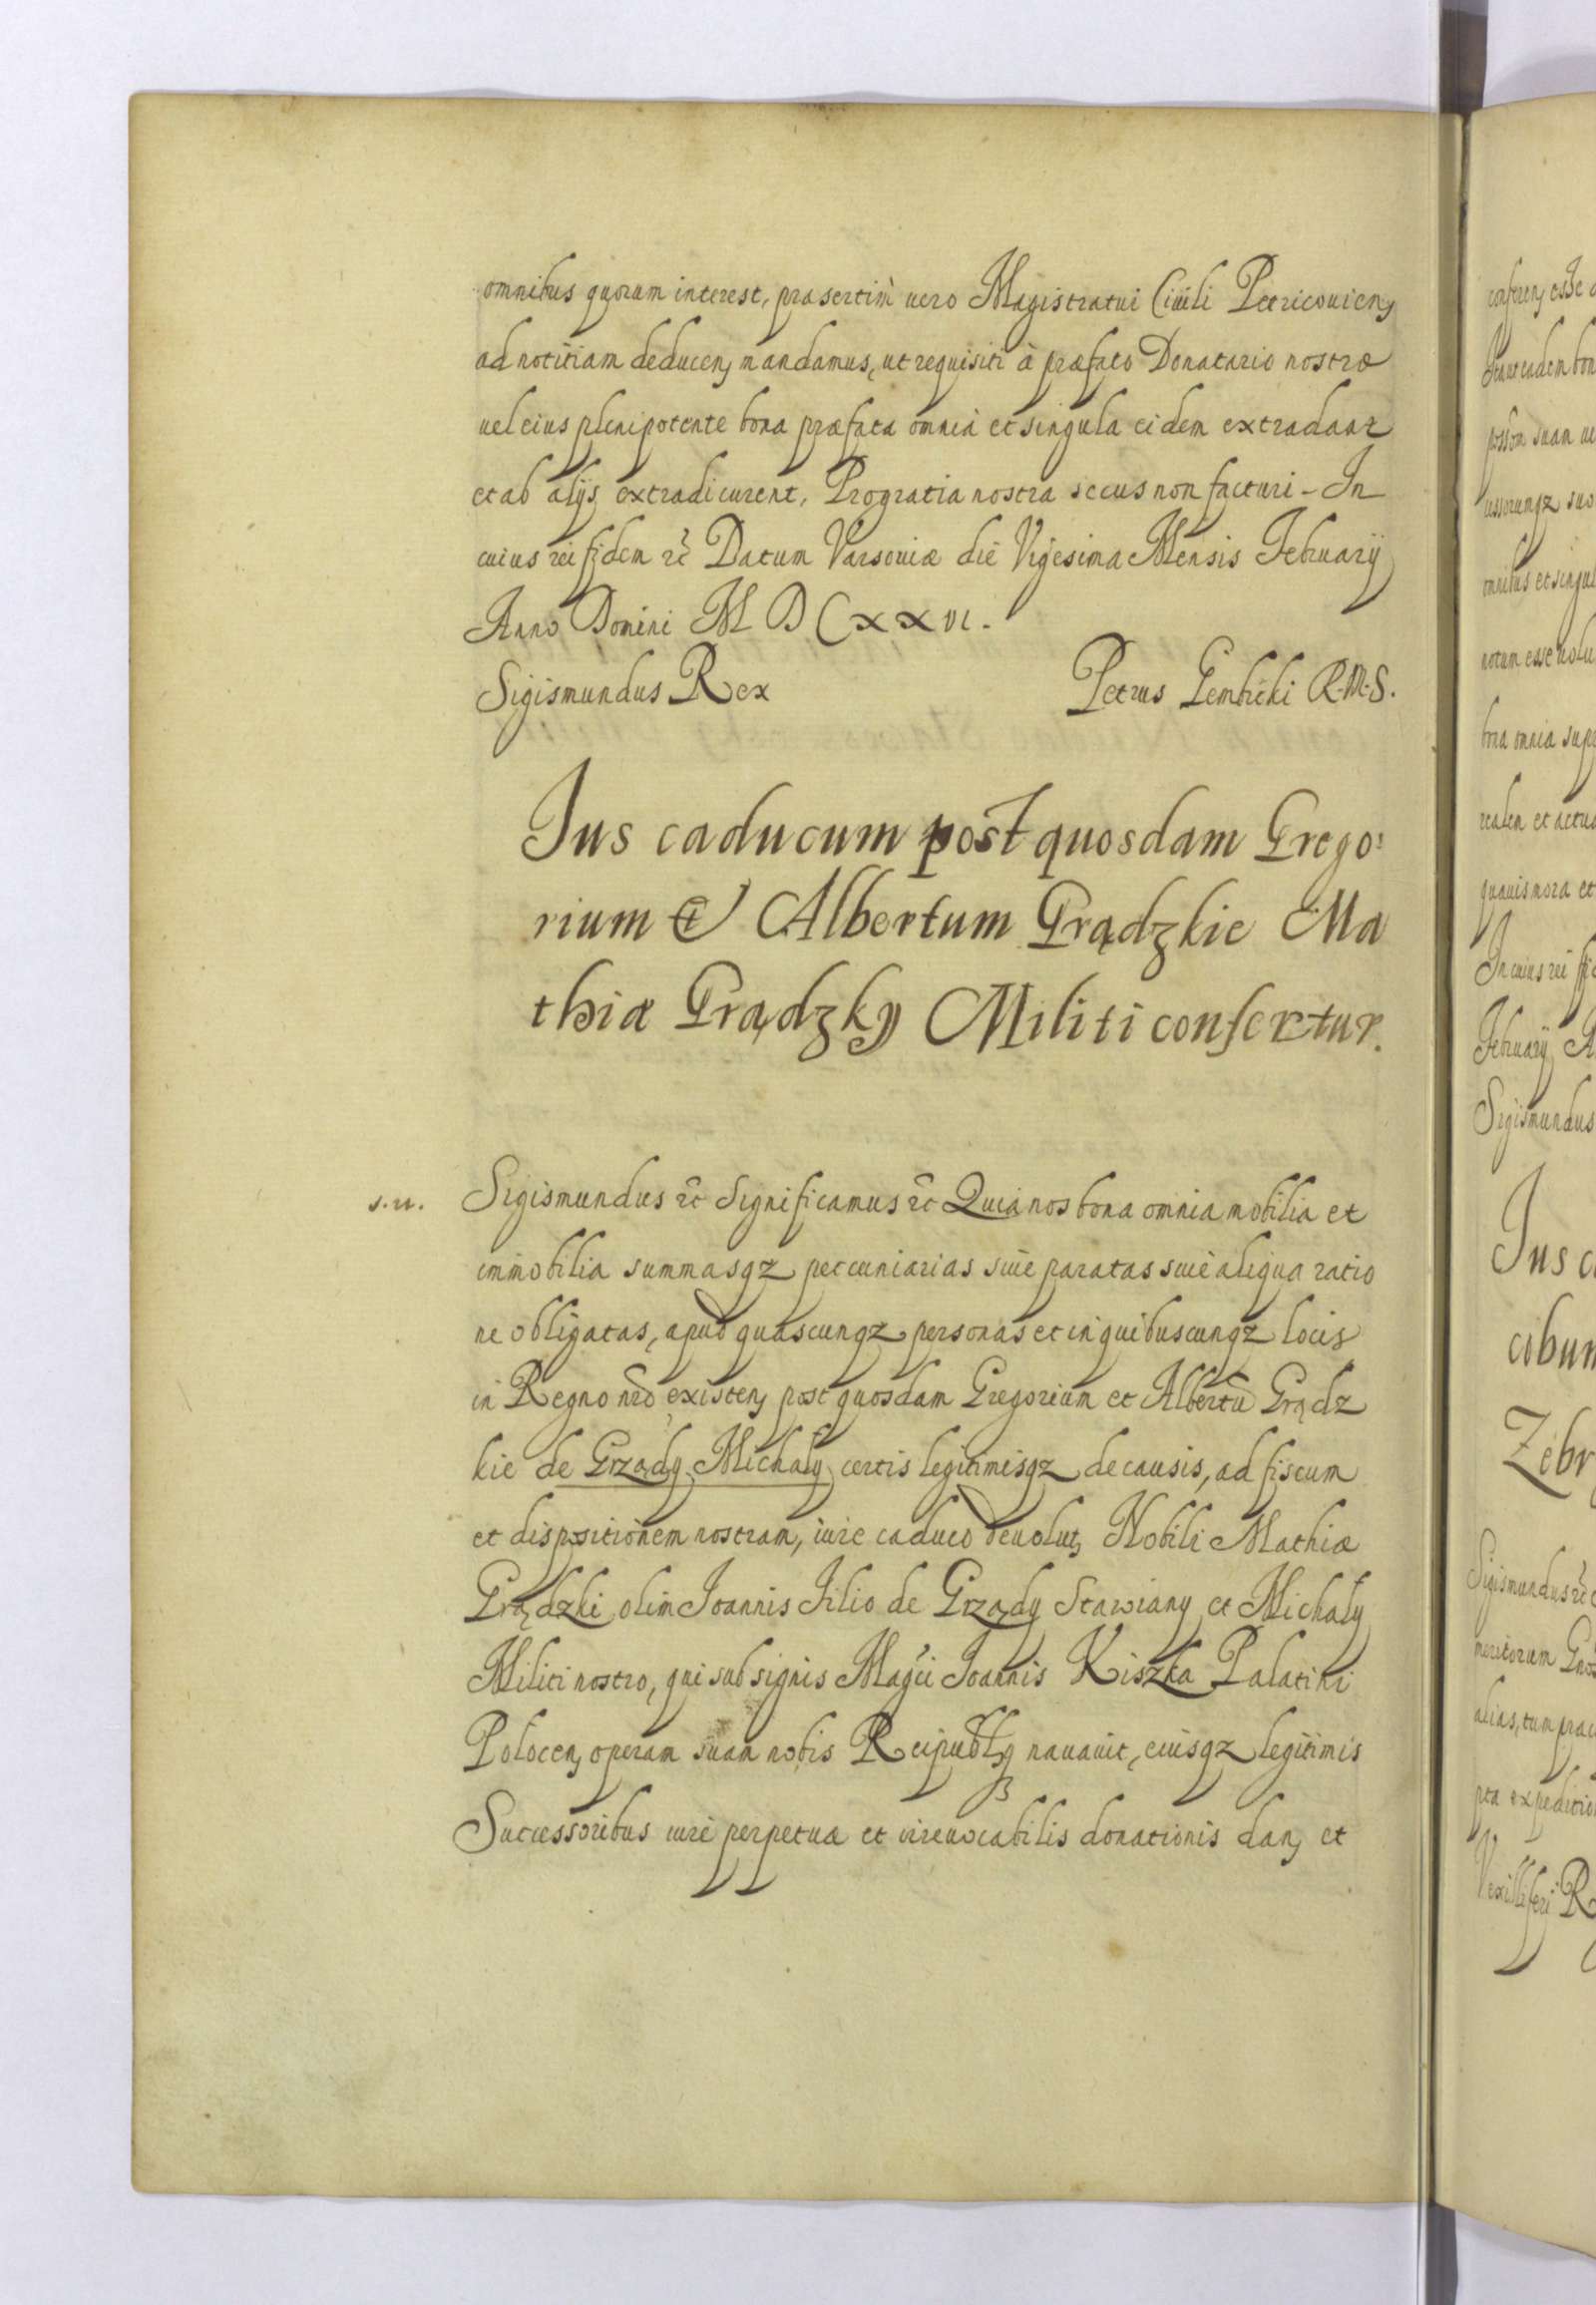 omnibus quorum interest, præsertim vero Magistratui Ciuili Petricouien,
ad notitiam deducen, mandamus, ut requisiti à præfato Donatario nostro
uel eius plenipotente bona præfata omnia et singula eidem extradant
et ab alijs extradi curent, Pro gratia nostra secus non facturi – In
cuius rei fidem etc Datum Varsouiæ die Vigesima Mensis Februarij
Anno Domini M D C x x vi.
Sigismundus Rex Petrus Gembicki R. M. S.
Ius caducum post quosdam Grego:
rium et Albertum Grądzkie Ma
thiæ Grądzky Militi confertur.
s. n. Sigismundus etc Significamus etc Quia nos bona omnia mobilia et
immobilia summasqz pecuniarias siue paratas siue aliqua ratio
ne obligatas, apud quascunqz personas et in quibuscunqz locis
in Regno nro existen, post quosdam Gregorium et Albertū Grądz
kie de Grządy Michały certis legitimisqz de causis, ad fiscum
et dispositionem nostram, iure caduco deuolut, Nobili Mathiæ
Grądzki olim Joannis Filio de Grządy Stawiany et Michały
Militi nostro, qui sub signis Magci Joannis Kiszka Palatini
Polocen, operam suam nobis Reipublqz nauauit, eiusqz legitimis
Successoribus iure perpetuæ et irreuocabilis donationis dan, et
conferen, esse
Ita ut eadem bon
posson suam
ussorumqz suo
omnibus et singul
notum esse uolu
bona omnia supr
realem et actua
quauis mora et
In cuius rei fid
Februarij A
Sigismundus
Ius c
cobum
Zebr
Sigismundus etc
meritorum Gnos
alias, tum præ
pta expeditio
Vexilliferi R